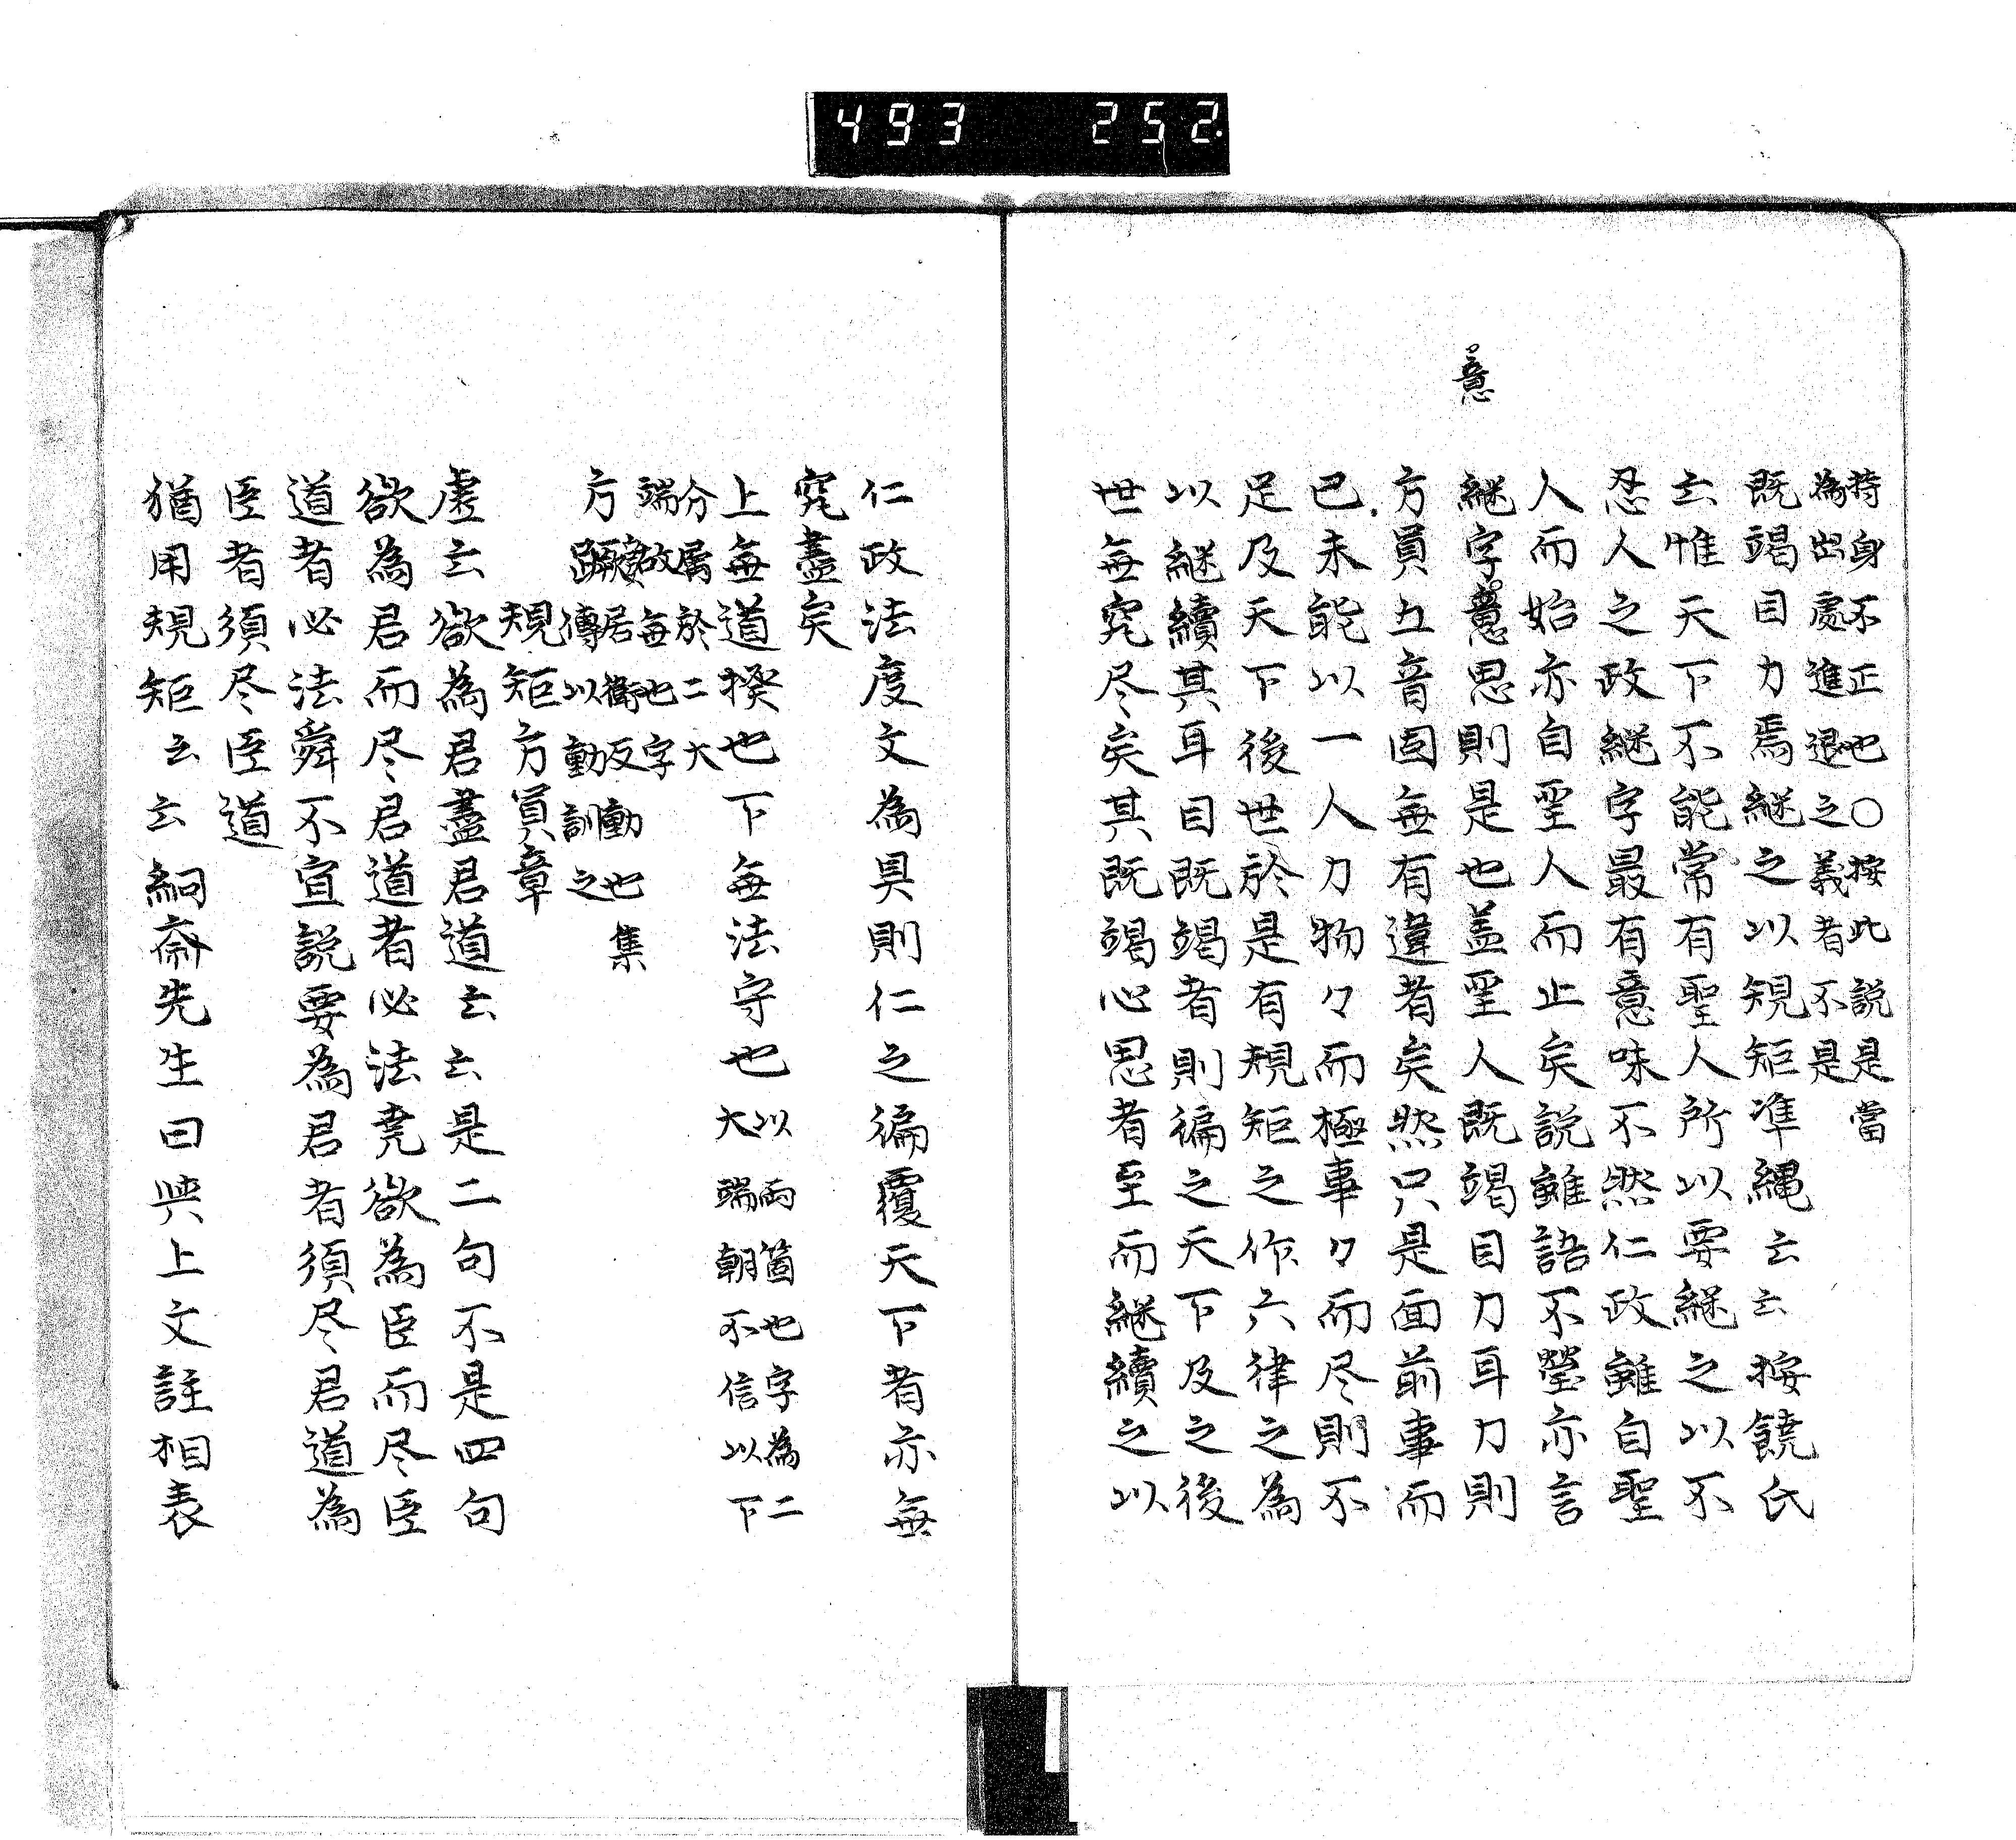 493 252
意
持身不正也○按此説是當
為出處進退之義者不是
既竭目力焉継之以規矩準縄云云按饒氏
云惟天下不能常有聖人所以要継之以不
忍人之政継字最有意味不然仁政雖自聖
人而始亦自聖人而止矣説雖語不瑩亦言
継字意思則是也盖聖人既竭目力耳力則
方員五音固無有違者矣然只是面前事而
已未能以一人力物々而極事々而尽則不
足及天下後世於是有規矩之作六律之為
以継續其耳目既竭者則徧之天下及之後
世無究尽矣其既竭心思者至而継續之以
仁政法度文為具則仁之徧覆天下者亦無
究盡矣
上無道揆也下無法守也
以両箇也字為二
大端朝不信以下
分属於二大
端故無也字
方蹶
居衛反動也集
傳以動訓之
規矩方員章
虚云欲為君盡君道云云是二句不是四句
欲為君而尽君道者必法堯欲為臣而尽臣
道者必法舜不宣説要為君者須尽君道為
臣者須尽臣道
猶用規矩云云絅斎先生曰與上文註相表